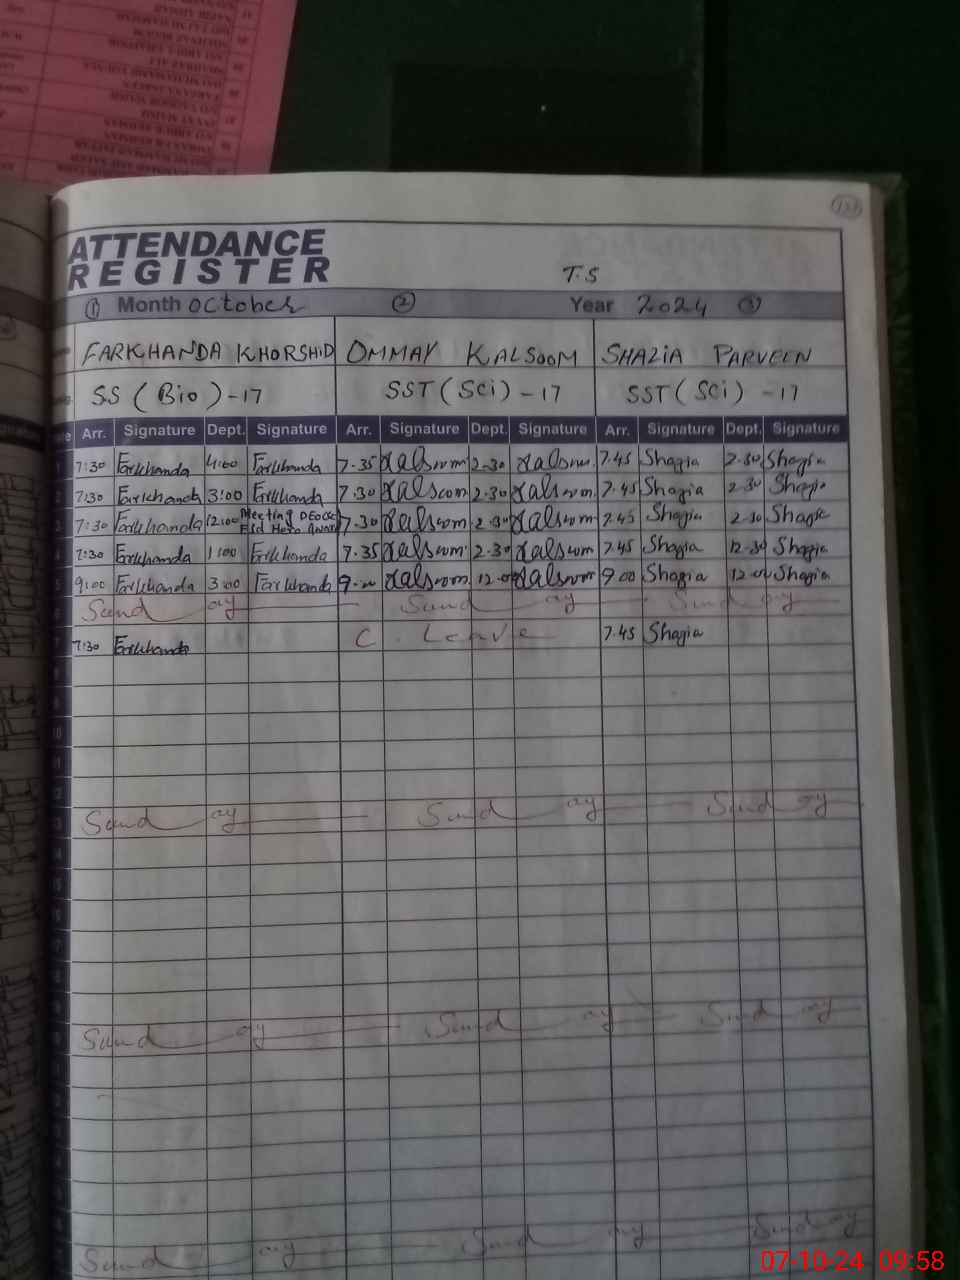 ATTENDANCE
REGISTER
T.S
① Month October ② Year 2024 ③
FARKHANDA KHORSHID OMMAY KALSOOM SHAZIA PARVEEN
SS (Bio) -17 SST (Sci) -17 SST (Sci) -17
Arr. Signature Dept. Signature Arr. Signature Dept. Signature Arr. Signature Dept. Signature
7:30 Farkhanda 4:00 Farkhanda 7.35 Kalsoom 2.30 Kalsoom 7.45 Shazia 2.30 Shazia
2 7:30 Farkhanda 3:00 Farkhanda 7.30 Kalsoom 2.30 Kalsoom. 7.45 Shazia 2.30 Shazia
7:30 Farkhanda 12:00 Meeting DEO 7.30 Kalsoom 2.30 Kalsoom 7.45 Shazia 2.30 Shazia
7:30 Farkhanda 1:00 Farkhanda 7.35 Kalsoom 2.30 Kalsoom 7.45 Shazia 12.30 Shazia
5 9:00 Farkhanda 3:00 Farkhanda 9.00 Kalsoom 12.00 Kalsoom 9 00 Shazia 12.00 Shazia
Sund ay Sund ay Sund ay
7:30 Farkhanda C. Leave 7.45 Shazia
Sund ay Sund ay Sund ay
Sund ay Sund ay Sund ay
Sund ay Sund ay Sunday
07-10-24 09:58